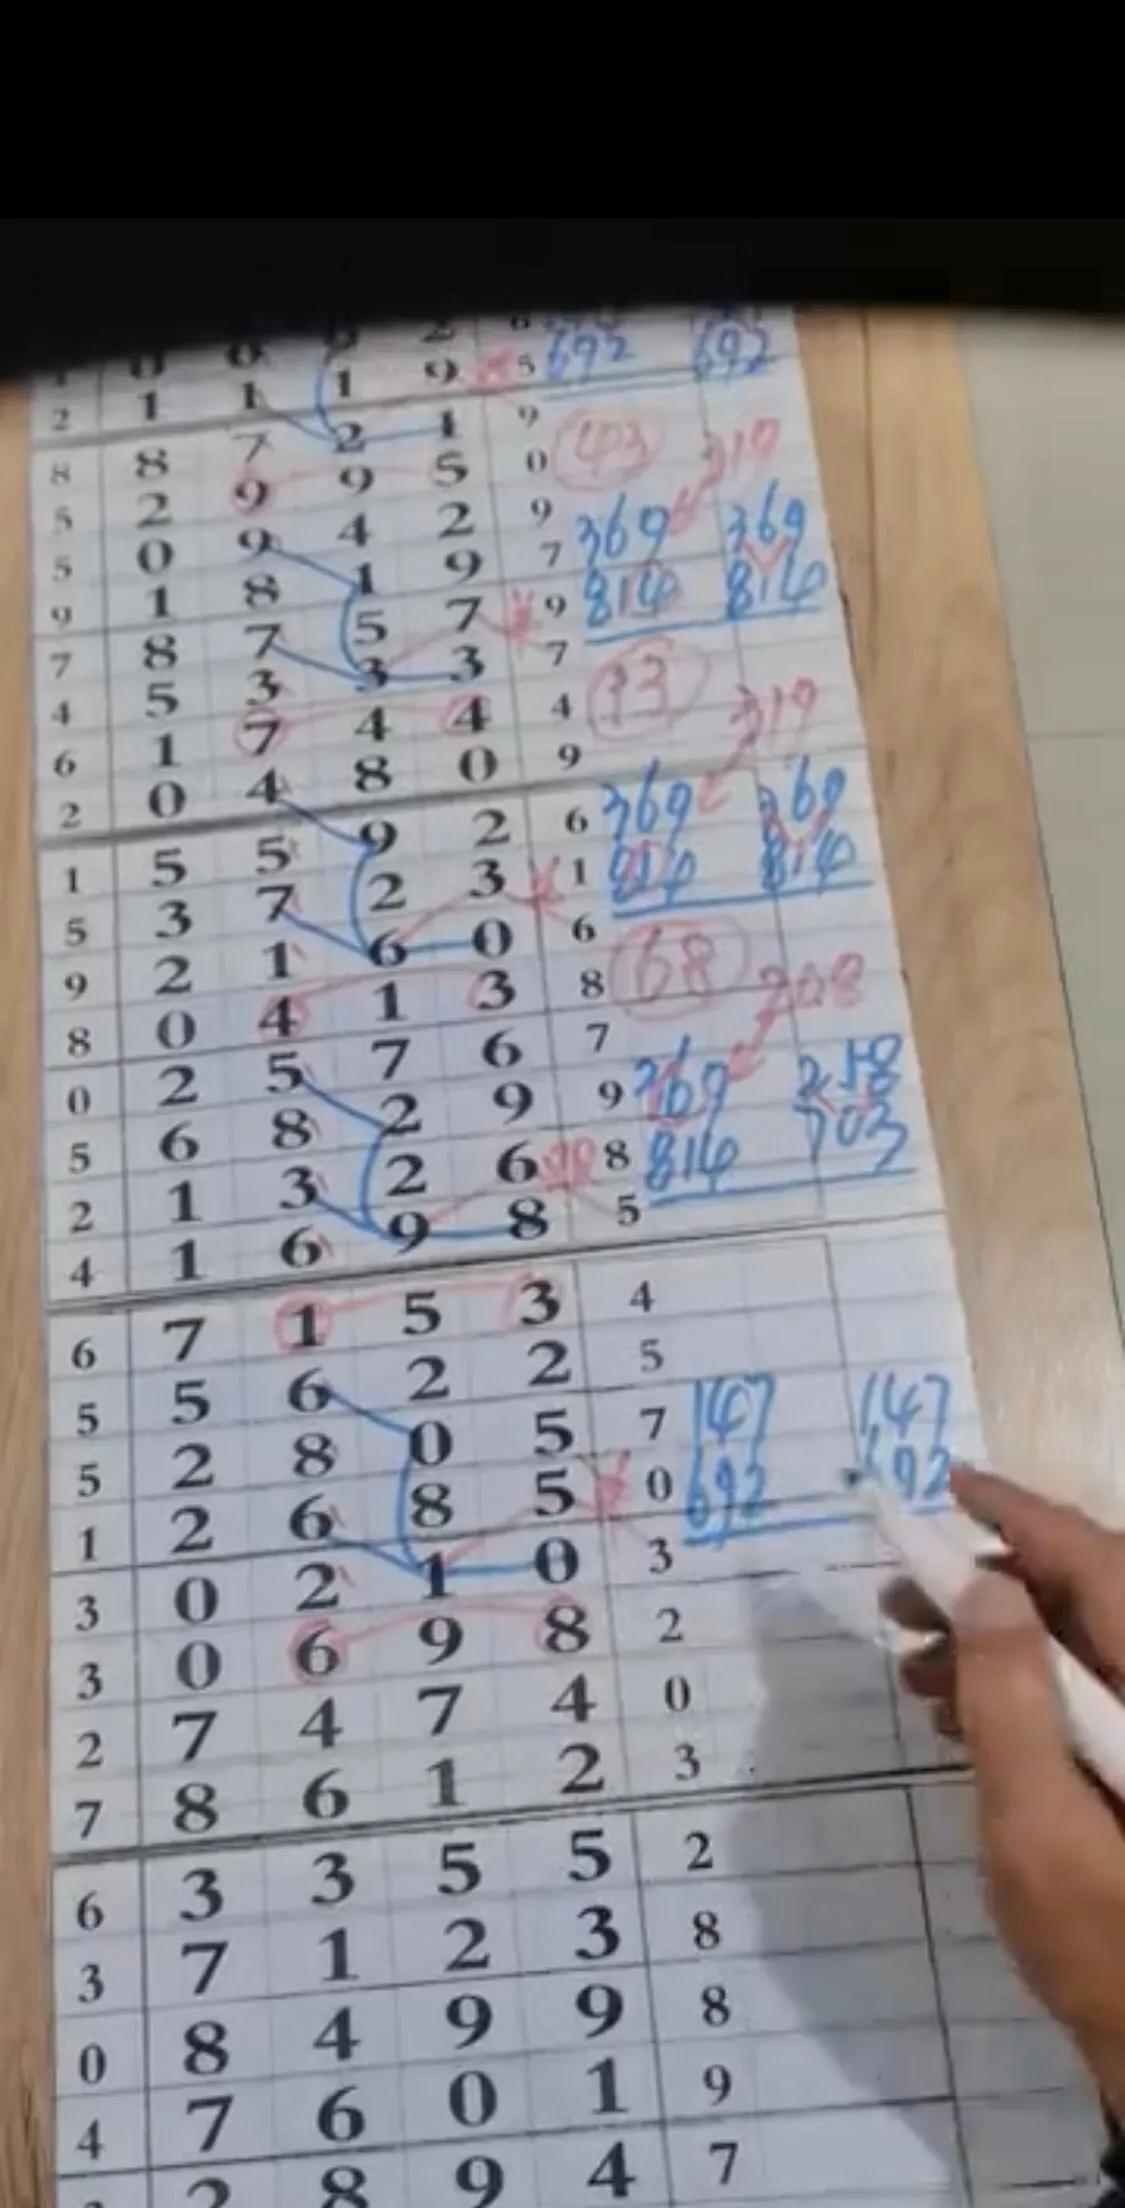 692 692
2 1 1 1 9 5
8 8 7 2 1 9
5 2 9 9 5 0 43 319
5 0 9 4 2 9 369 369
9 1 8 1 9 7 814 814
7 8 7 5 7 9
4 5 3 3 3 7
6 1 7 4 4 4 319
2 0 4 8 0 9
1 5 5 9 2 6 369 369
5 3 7 2 3 1 814 814
9 2 1 6 0 6
8 0 4 1 3 8 68 208
0 2 5 7 6 7
5 6 8 2 9 9 369 258
2 1 3 2 6 8 814 703
4 1 6 9 8 5
6 7 1 5 3 4
5 5 6 2 2 5
5 2 8 0 5 7 147 147
1 2 6 8 5 0 692 692
3 0 2 1 0 3
3 0 6 9 8 2
2 7 4 7 4 0
7 8 6 1 2 3
6 3 3 5 5 2
3 7 1 2 3 8
0 8 4 9 9 8
4 7 6 0 1 9
2 8 9 4 7